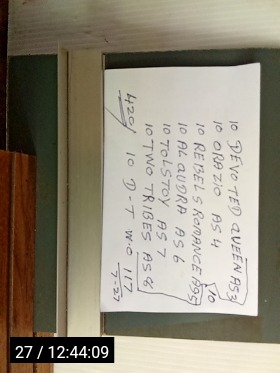 10 DEVOTED QUEEN AS3
10 ORAZIO AS 4
10 REBELS ROMANCE AS5
10
10 AL QUDRA AS 6
10 TOLSTOY AS 7
10 TWO TRIBES AS 8
420/ 10 D-T W.O 117
7-27
27 / 12:44:09